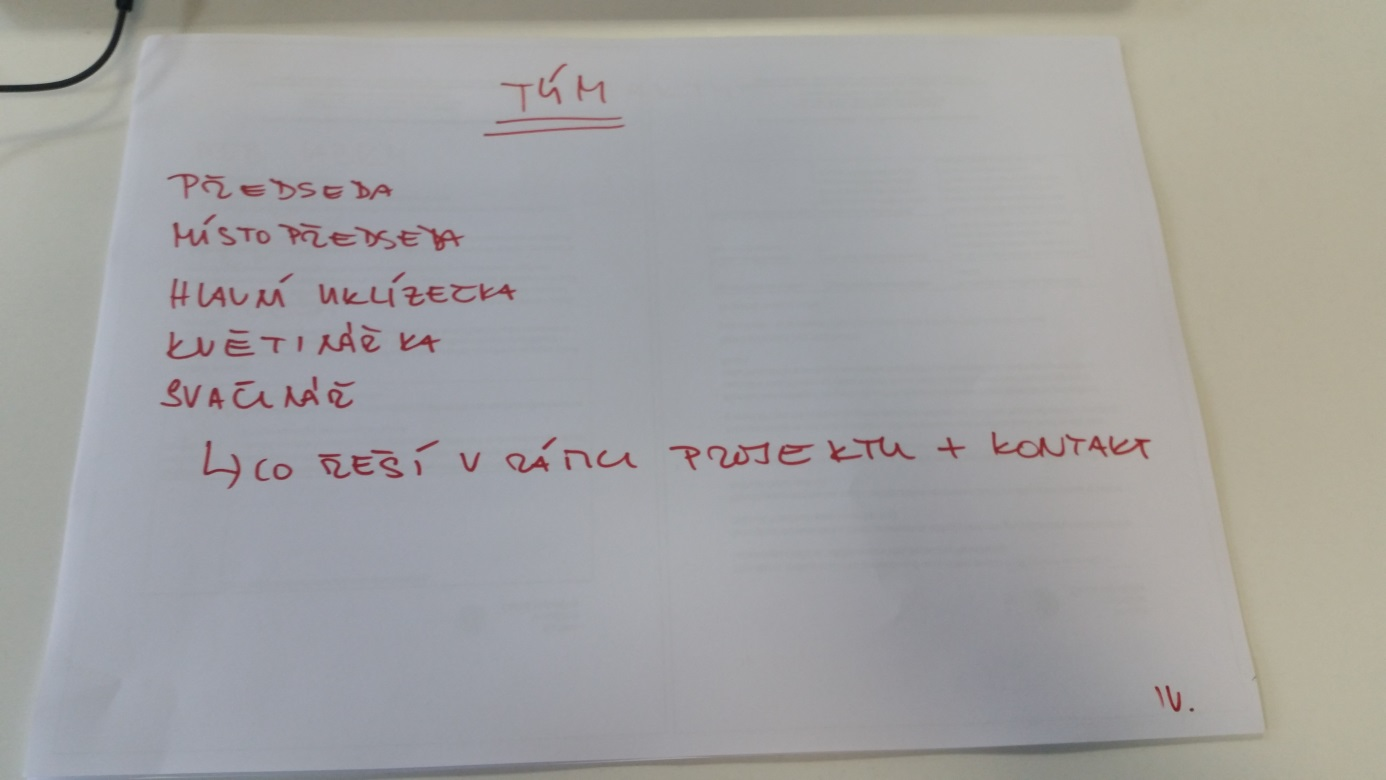 TÝM
PŘEDSEDA
MÍSTOPŘEDSEDA
HLAVNÍ UKLÍZEČKA
KVĚTINÁŘKA
SVAČINÁŘ
↳ CO ŘEŠÍ V RÁMCI PROJEKTU + KONTAKT
IV.